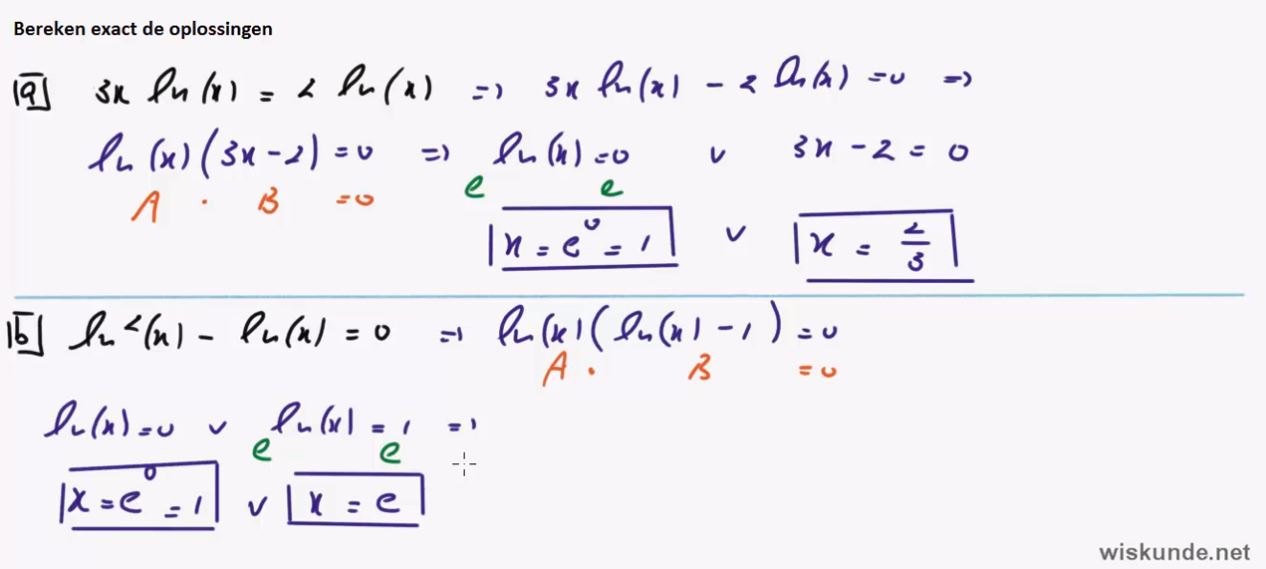 Bereken exact de oplossingen
a 3x ln(x) = 2 ln(x) => 3x ln(x) - 2 ln(x) = 0 =>
ln(x)(3x-2) = 0 => ln(x) = 0 v 3x - 2 = 0
A · B = 0 e e
x = e⁰ = 1 v x = 2/3
b ln²(x) - ln(x) = 0 => ln(x)(ln(x) - 1) = 0
A · B = 0
ln(x) = 0 v ln(x) = 1 =>
e e
x = e⁰ = 1 v x = e
wiskunde.net